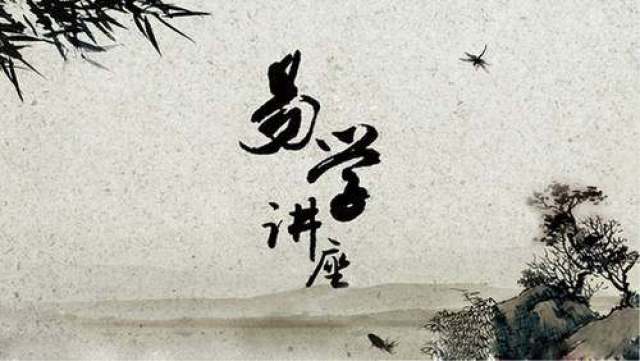 易学
讲座